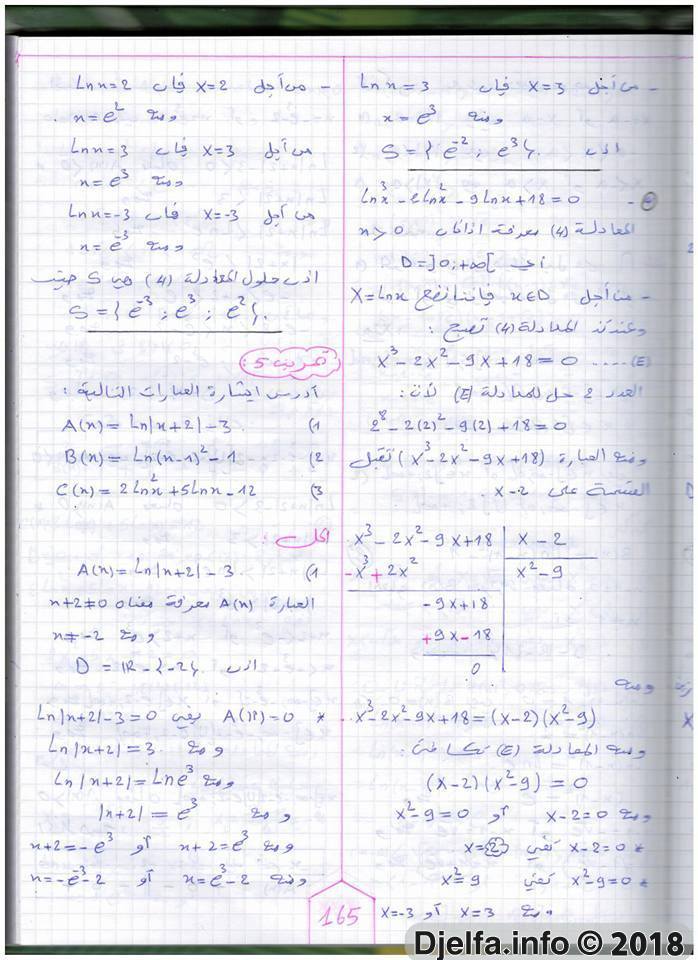 - من أجل X=3 فإن ln x = 3
ومنه x = e³
اذن S = { e⁻² ; e³ }.
ln x³ - 2 ln x² - 9 ln x + 18 = 0
المعادلة (4) معرفة اذا كان x > 0
أي D = ]0 ; +∞[
- من أجل x∈D فإننا نضع X = ln x
وعندئذ المعادلة (4) تصبح :
X³ - 2X² - 9X + 18 = 0 .... (E)
العدد 2 حل للمعادلة (E) لأن :
2³ - 2(2)² - 9(2) + 18 = 0
ومنه العبارة (X³ - 2X² - 9X + 18) تقبل
القسمة على X - 2
X³ - 2X² - 9X + 18 | X - 2
-X³ + 2X² | X² - 9
- 9X + 18
+ 9X - 18
0
ومنه
X³ - 2X² - 9X + 18 = (X - 2)(X² - 9)
ومنه المعادلة (E) تكافئ :
(X - 2)(X² - 9) = 0
ومنه X - 2 = 0 أو X² - 9 = 0
* X - 2 = 0 تعني X = 2
* X² - 9 = 0 تعني X² = 9
ومنه X = 3 أو X = -3
- من أجل X = 2 فإن Ln x = 2
ومنه x = e²
من أجل X = 3 فإن Ln x = 3
ومنه x = e³
من أجل X = -3 فإن Ln x = -3
ومنه x = e⁻³
اذن حلول المعادلة (4) هي S حيث
S = { e⁻³ ; e³ ; e² }.
تمرين 5 :
أدرس إشارة العبارات التالية :
1) A(x) = Ln|x+2| - 3
2) B(x) = Ln(x-1)² - 1
3) C(x) = 2 ln x² + 5 ln x - 12
الحل :
1) A(x) = Ln|x+2| - 3
العبارة A(x) معرفة معناه x+2 ≠ 0
ومنه x ≠ -2
اذن D = IR - {-2}
* A(x) = 0 يعني Ln|x+2| - 3 = 0
ومنه Ln|x+2| = 3
ومنه Ln|x+2| = Ln e³
ومنه |x+2| = e³
ومنه x+2 = e³ أو x+2 = -e³
ومنه x = e³ - 2 أو x = -e⁻³ - 2
165
Djelfa.info © 2018